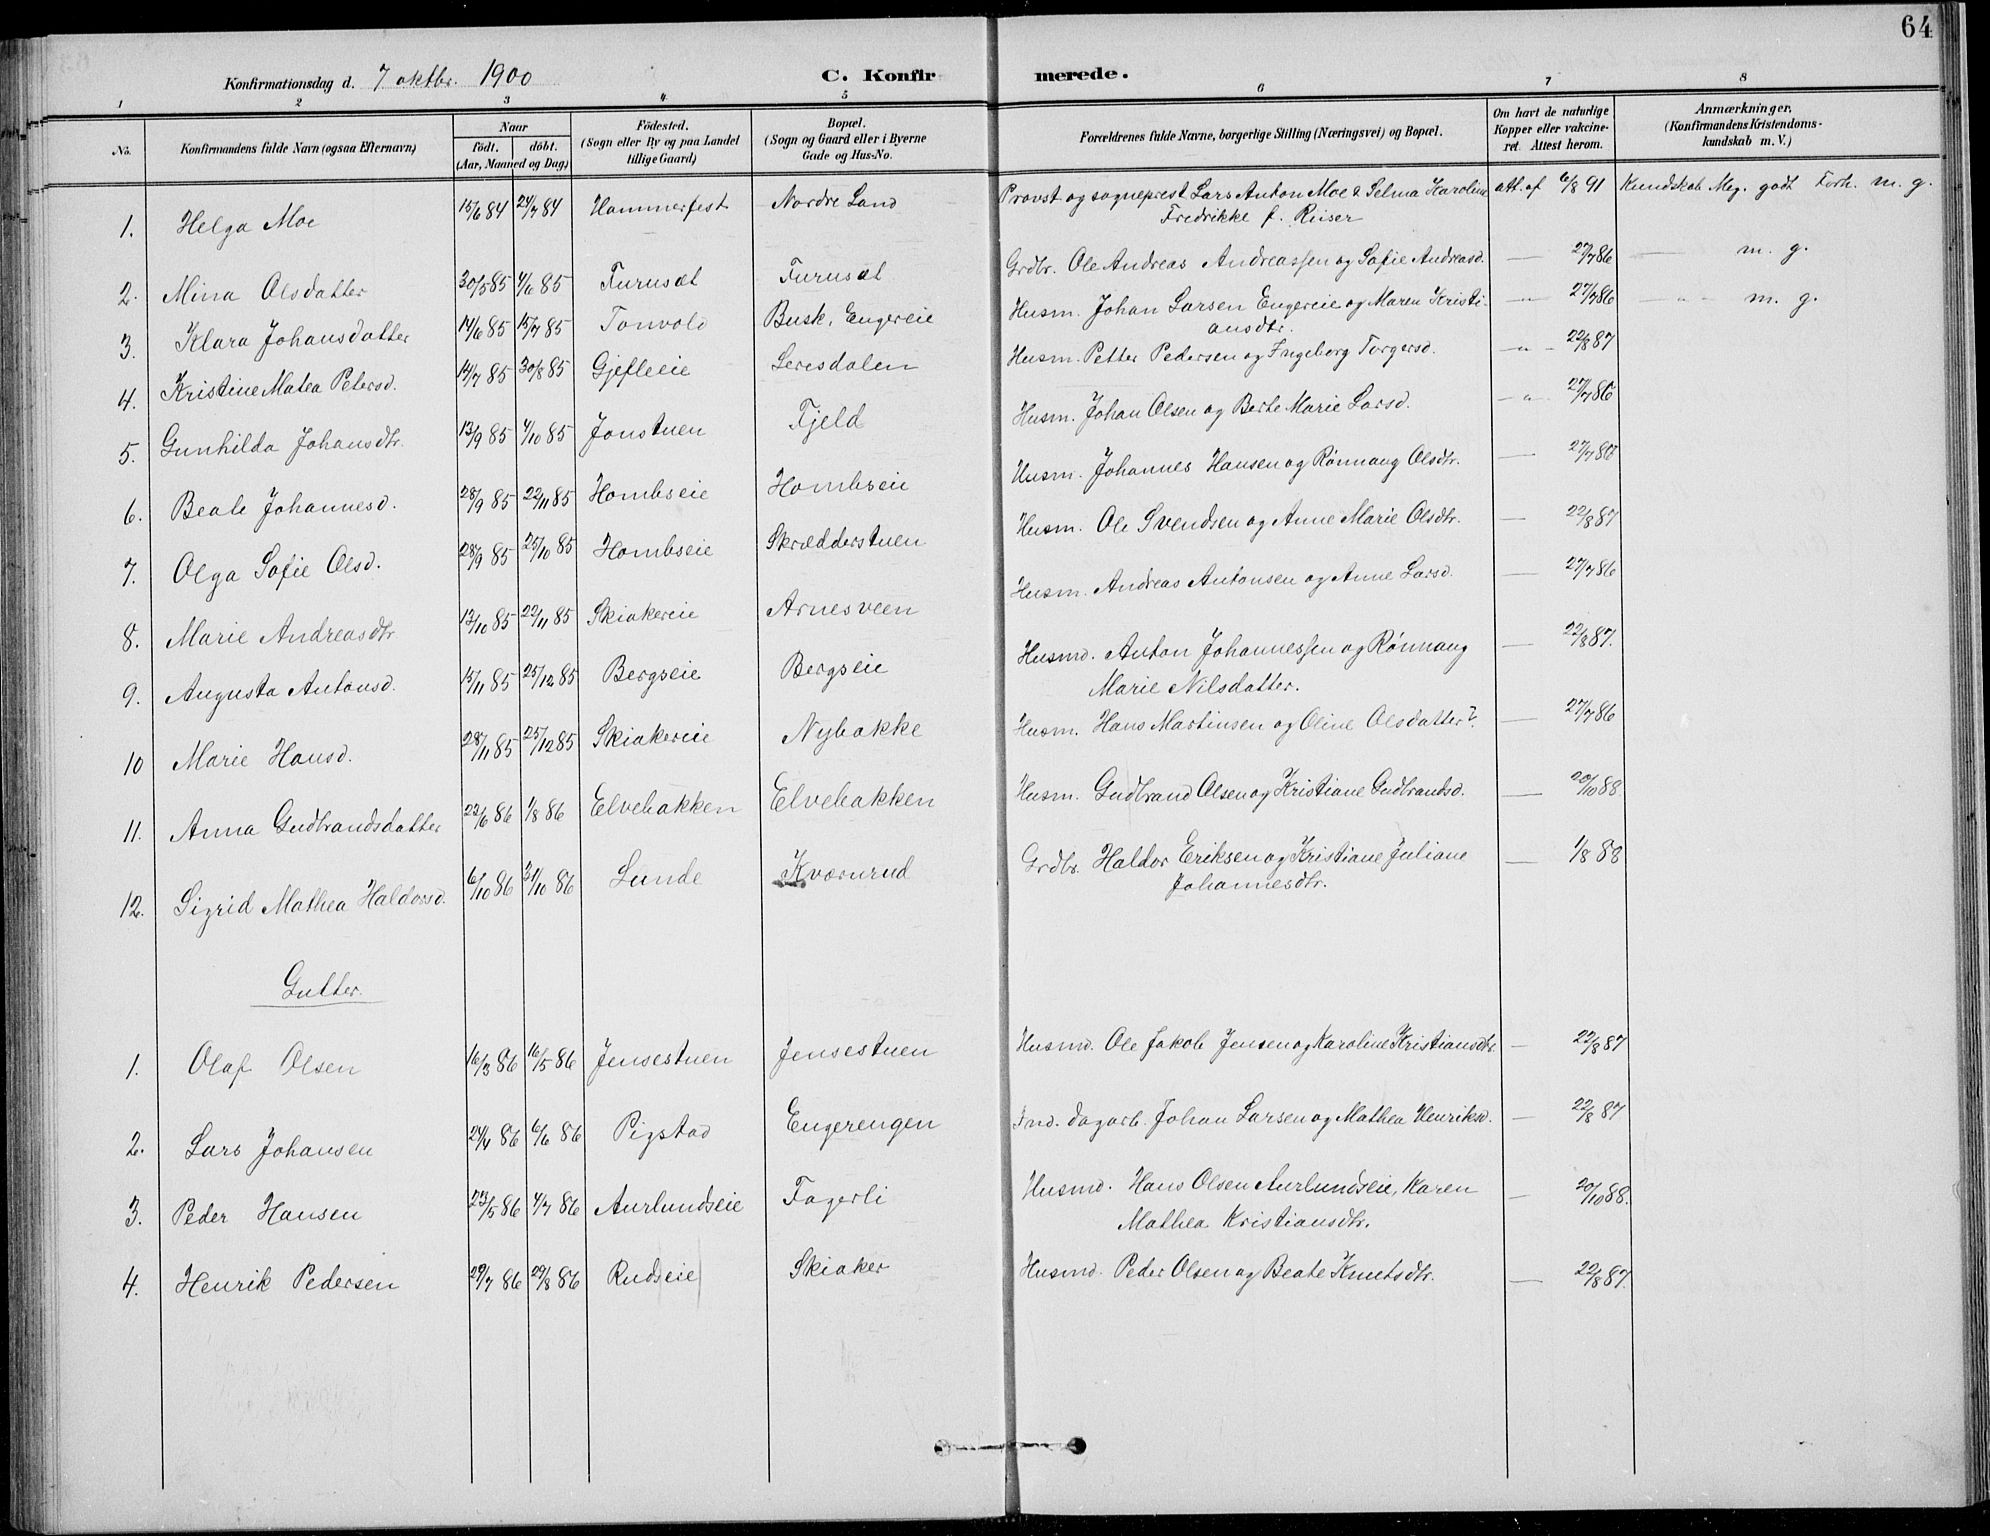 64
Konfirmationsdag d. 7 oktbr. 1900 C. Konfirmerede.
1 2 3 4 5 6 7 8
No. Konfirmandens fulde Navn (ogsaa Efternavn) Naar födt. döbt. (Aar, Maaned og Dag) Födested. (Sogn eller By og paa Landet tillige Gaard) Bopæl. (Sogn og Gaard eller i Byerne Gade og Hus-No. Forældrenes fulde Navne, borgerlige Stilling (Næringsvei) og Bopæl. Om havt de naturlige Kopper eller vakcineret. Attest herom. Anmærkninger. (Konfirmandens Kristendomskundskab m. V.)
1. Helga Moe 15/6 84 24/7 84 Hammerfest Nordre Land Provst og sogneprest Lars Anton Moe & Selma Karoline att. af 6/8 91 Kundskab Meg. godt Forh. m. g.
Fredrikke f. Reiser
2. Mina Olsdatter 30/5 85 4/6 85 Furusæt Furusæt Grdbr. Ole Andreas Andreassen og Sofie Andreasd. — 27/7 86 — m. g.
3. Klara Johansdatter 14/6 85 15/7 85 Tonvold Busk, Engereie Husm. Johan Larsen Engereie og Maren Kristi- —"— 27/7 86 —"— m. g.
ansdtr.
4. Kristine Matea Petersd. 14/7 85 30/8 85 Gjefleeie Leresdalen Husm. Petter Pedersen og Ingeborg Torgersd. —"— 22/8 87
5. Gunhilda Johansdtr. 13/9 85 4/10 85 Jonstuen Fjeld Husm. Johan Olsen og Berte Marie Larsd. —"— 27/7 86
6. Beate Johannesd. 28/9 85 22/11 85 Hombseie Hombseie Husm. Johannes Hansen og Rønnaug Olsdtr. — 27/7 86
7. Olga Sofie Olsd. 28/9 85 25/10 85 Hombseie Skrædderstuen Husm. Ole Svendsen og Anne Marie Olsdtr. — 22/8 87
8. Marie Andreasdtr 13/10 85 22/11 85 Skiakereie Arnesveen Husm. Andreas Antonsen og Anne Larsd. — 27/7 86
9. Augusta Antonsd. 15/11 85 25/12 85 Bergseie Bergseie Husmd. Anton Johannessen og Rønnaug — 22/8 87.
Marie Nilsdatter.
10 Marie Hansd. 28/11 85 25/12 85 Skiakereie Nybakke Husm. Hans Martinsen og Oline Olsdatter? — 27/7 86
11. Anna Gudbrandsdatter 22/6 86 1/8 86 Elvebakken Elvebakken Husm. Gudbrand Olsen og Kristiane Gudbrandsd. — 20/10 88.
12. Sigrid Mathea Haldorsd. 6/10 86 31/10 86 Lunde Kværnrud Grdbr. Haldor Eriksen og Kristiane Juliane — 1/8 88
Johannesdtr.
Gutter.
1. Olaf Olsen 16/3 86 16/5 86 Jensestuen Jensestuen Husmd. Ole Jakob Jensen og Karoline Kristiansdtr. — 22/8 87
2. Lars Johansen 24/4 86 6/6 86 Pigstad Engerengen Ind. dagarb. Johan Larsen og Mathea Henriksd. — 22/8 87
3. Peder Hansen 23/5 86 4/7 86 Aurlundseie Fagerli Husmd. Hans Olsen Aurlundseie, Karen — 20/10 88.
Mathea Kristiansdtr.
4. Henrik Pedersen 29/7 86 29/8 86 Rudseie Skiaker Husmd. Peder Olsen og Beate Knutsdtr. — 22/8 87.